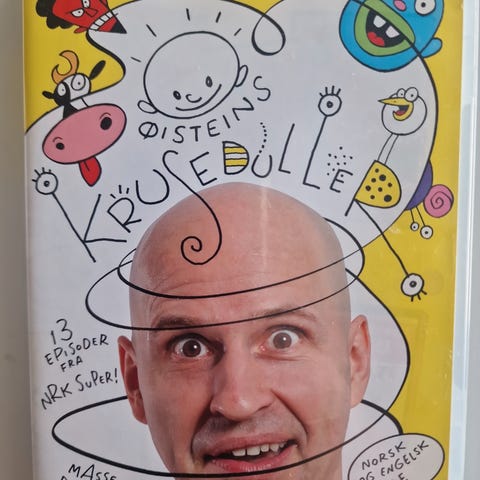 ØISTEINS
KRUSEDULLER
13
EPISODER
FRA
NRK SUPER!
MASSE
NORSK
OG ENGELSK